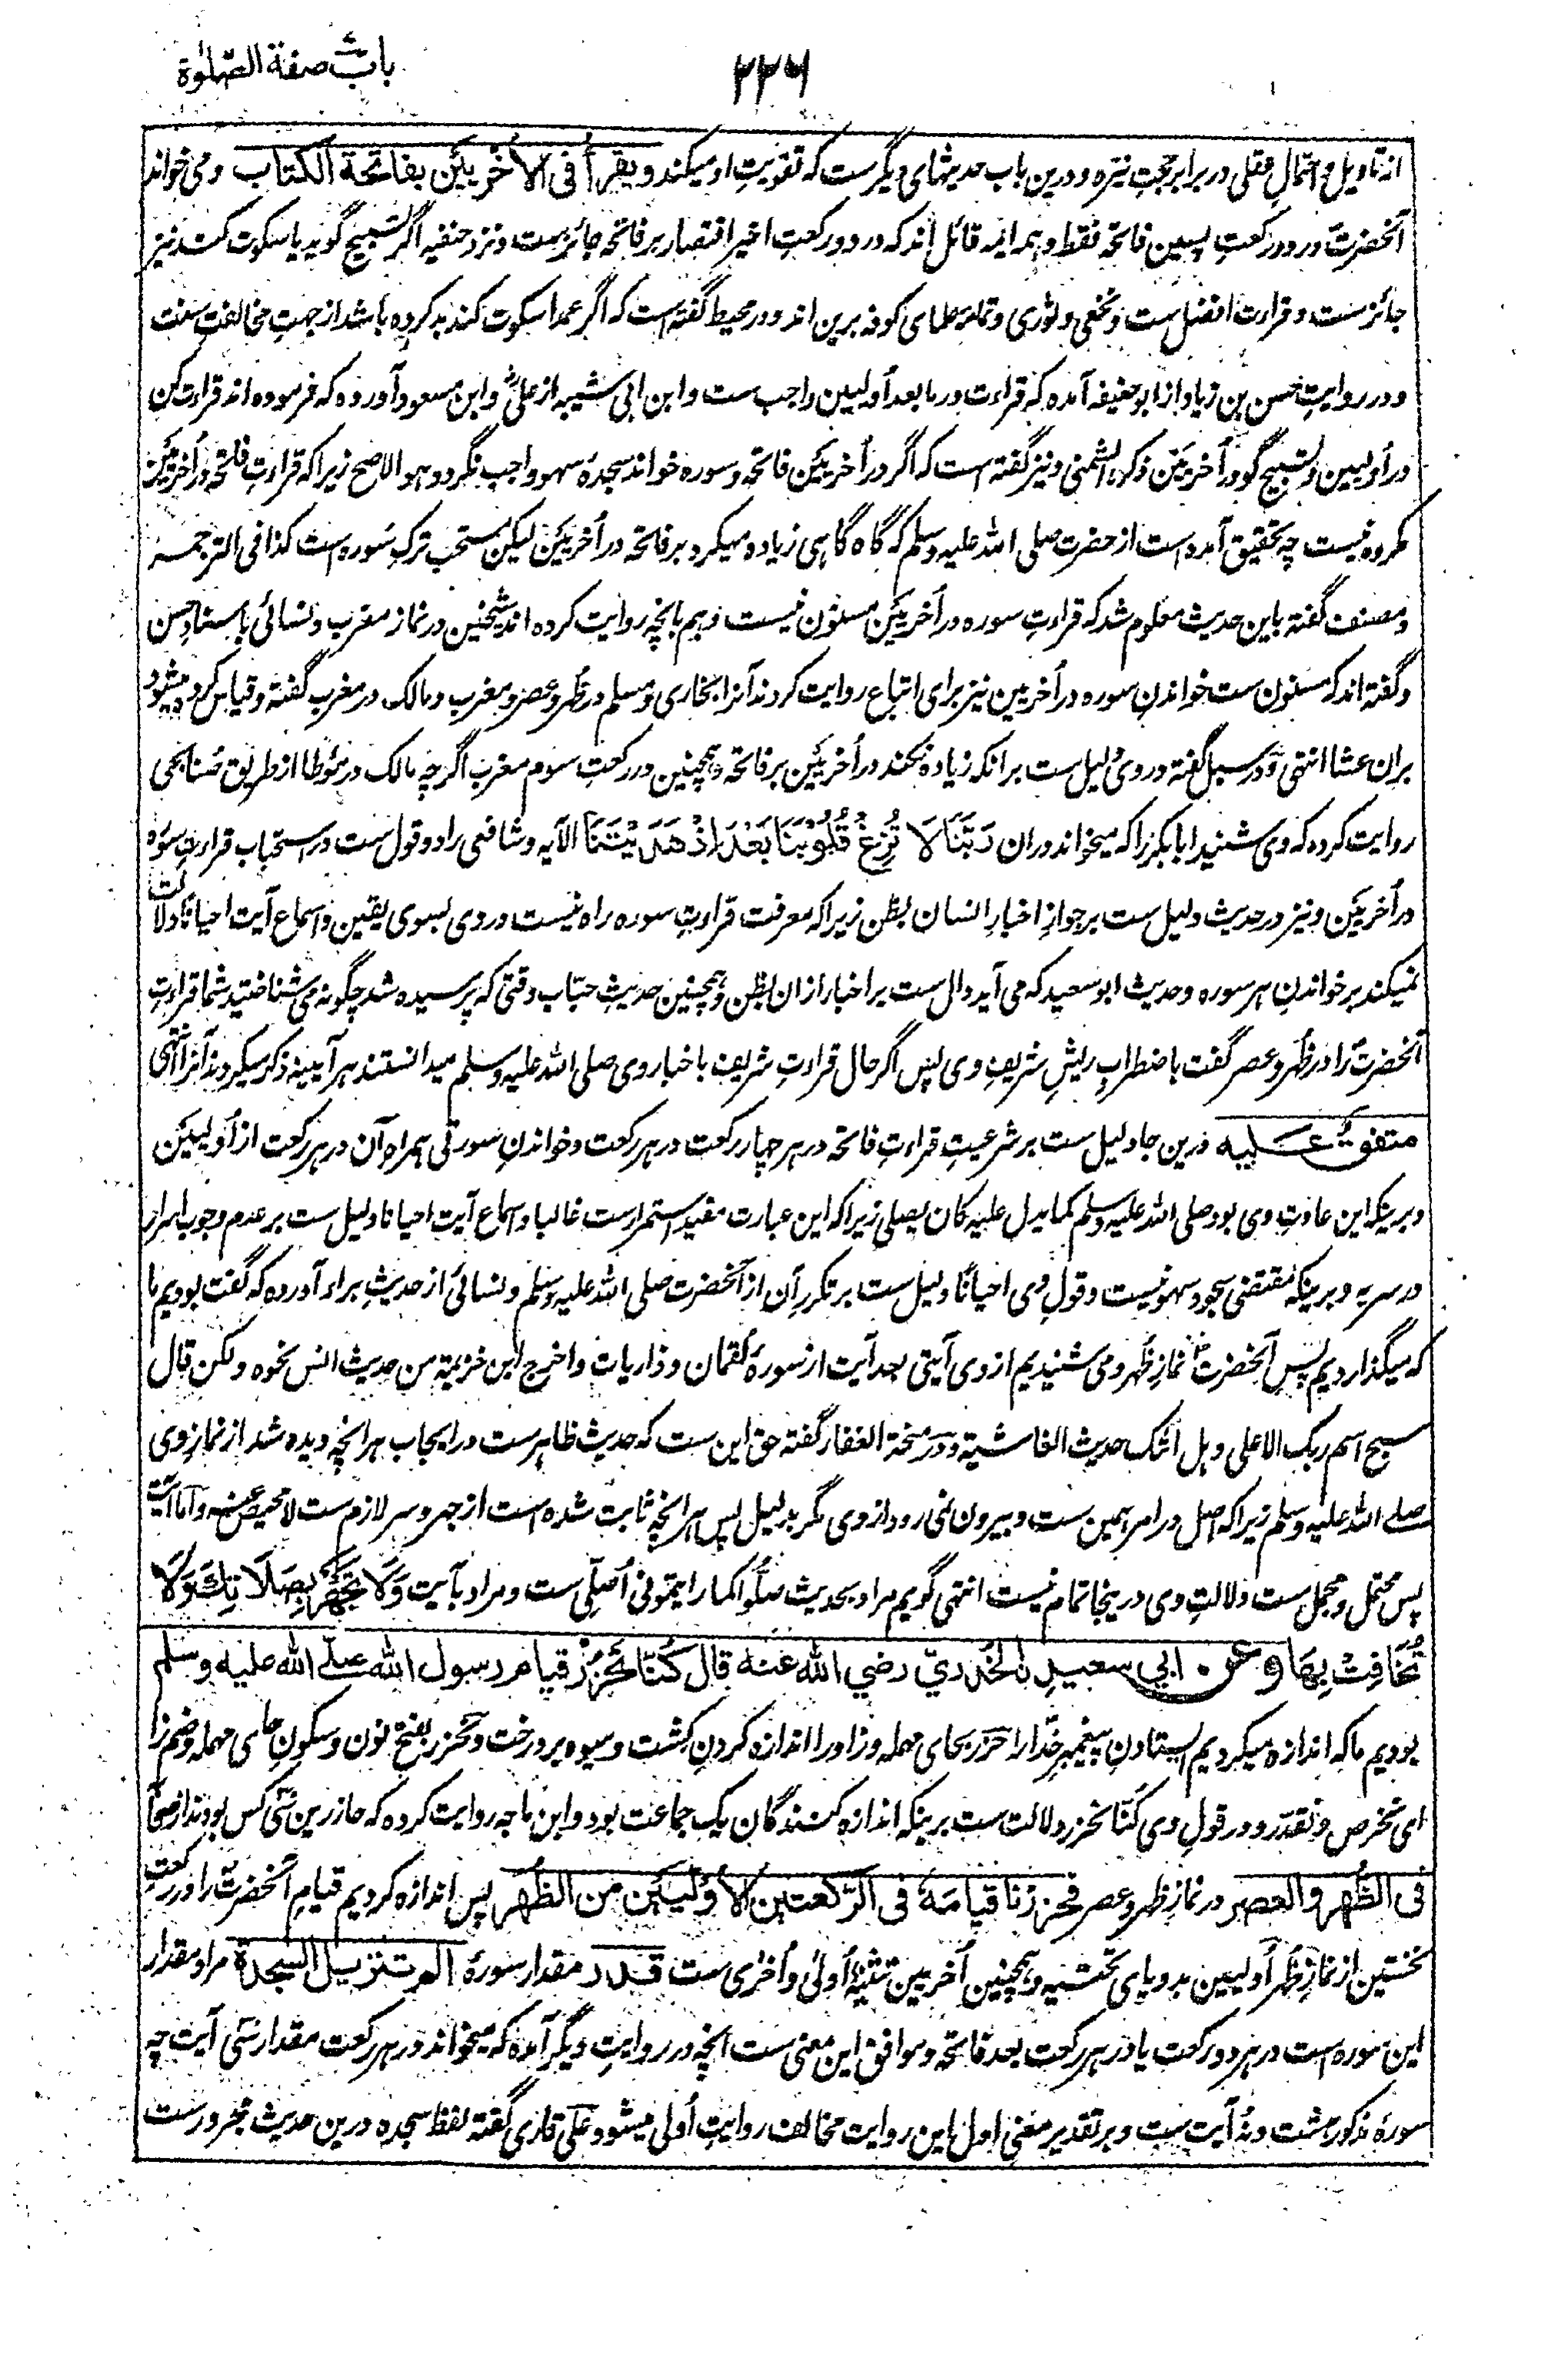 ۲۲۶
بابُ صفة الصّلٰوة
از تاویل و احتمالِ عقلی در برابر حجتِ نیّره و درین باب حدیثهای دیگرست که تقویتِ او میکند و یقرأ فی الأُخْرَیَیْنِ بفاتحة الکتاب و می خواند
آنحضرتؐ در دو رکعتِ پسین فاتحه فقط و همه ائمه قائل اند که در دو رکعتِ اخیر اقتصار بر فاتحه جائزست و نزد حنفیه اگر تسبیح گوید یا سکوت کند نیز
جائزست و قراءت افضل ست و نخعی و ثوری و تمامه علمای کوفه برین اند و در محیط گفته است که اگر عمدا سکوت کند بد کرده باشد از جهتِ مخالفتِ سنت
و در روایتِ حسن بن زیاد از ابو حنیفه آمده که قراءت در ما بعد اُولیین واجب ست و ابن ابی شیبه از علیؓ و ابن مسعود آورده که فرموده اند قراءت کن
در اُولیین و تسبیح گو در اُخریَین ذکره الشمنی و نیز گفته است که اگر در اُخریَیْن فاتحه و سوره خواند سجدۂ سهو واجب نگردد و هو الاصح زیرا که قراءتِ فاتحه در اُخریَیْن
مکروه نیست چه بتحقیق آمده است از حضرت صلی الله علیه وسلم که گاه گاهی زیاده میکرد بر فاتحه در اُخریَیْن لیکن مستحب ترکِ سُوره است کذا فی الترجمـه
و مصنف گفته باین حدیث معلوم شد که قراءتِ سوره در اُخریَیْن مسنون نیست و هم بانچه روایت کرده اند شیخین در نماز مغرب و نسائی باسنادِ حسن
و گفته اند که مسنون ست خواندنِ سوره در اُخریین نیز برای اتباع روایت کردند آنرا بخاری و مسلم در ظُهر و عصر و مغرب و مالک در مغرب گفته و قیاس کرده میشود
بران عشا انتهی و در سبل گفته در وی دلیل ست بر آنکه زیاده نکند در اُخریَیْن بر فاتحه و همچنین در رکعتِ سوم مغرب اگرچه مالک در مُوطا از طریق صُنابحی
روایت کرده که وی شنید ابا بکر را که میخواند دران رَبَّنَا لَا تُزِغْ قُلُوْبَنَا بَعْدَ اِذْ هَدَیْتَنَا الآیه و شافعی را دو قول ست در استحباب قراءتِ سوره
در اُخریَیْن و نیز در حدیث دلیل ست بر جوازِ اخبارِ انسان بظن زیرا که معرفت قراءتِ سوره راه نیست در وی بسوی یقین و اسماع آیت احیاناً دلالت
نمیکند بر خواندنِ هر سوره و حدیث ابو سعید که می آید دال ست بر اخبار ازان بظن و همچنین حدیثِ خبّاب وقتی که پرسیده شد چگونه می شناختید شما قراءتِ
آنحضرتؐ را در ظُهر و عصر گفت باضطرابِ ریشِ شریفِ وی پس اگر حال قراءتِ شریف باخبار وی صلی الله علیه وسلم میدانستند هر آیینه ذکر میکردند آنرا انتهی
متفقٌ علـیه درین جا دلیل ست بر شرعیتِ قراءتِ فاتحه در هر چهار رکعت در هر رکعت و خواندنِ سورتی همراه آن در هر رکعت از اُولیَیْن
و برینکه این عادتِ وی بود صلی الله علیه وسلم کما یدل علیه کان یصلی زیرا که این عبارت مفید استمرارست غالبا و اسماع آیت احیانا دلیل ست بر عدم وجوب اسرار
در سریه و برینکه مقتضی سجود سهو نیست و قولِ وی احیاناً دلیل ست بر تکررِ آن از آنحضرت صلی الله علیه وسلم و نسائی از حدیثِ براء آورده که گفت بودیم ما
که میگذاردیم پسِ آنحضرتؐ نمازِ ظُهر و می شنیدیم از وی آیتی بعد آیت از سورۂ لقمان و ذاریات و اخرج ابن خزیمة من حدیث انس نحوه ولکن قال
سبح اسم ربک الاعلی و هل اتٰک حدیث الغاشیة و در منحة الغفار گفته حق این ست که حدیث ظاهرست در ایجاب هر انچه دیده شد از نمازِ وی
صلے الله علیه وسلم زیرا که اصل در امر همین ست و بیرون نمی رود از وی مگر بدلیل پس هر انچه ثابت شده است از جهر و سر لازم ست لا محیص عنه و اما آیت
پس محتمل و مجمل ست دلالتِ وی درینجا تمام نیست انتهی گویم مراد بحدیث صلّوا کما رایتمونی اُصلّی ست و مراد بآیت وَلَا تَجْهَرْ بِصَلَاتِكَ وَلَا
تُخَافِتْ بِهَا وعن ابی سعیدٍ الخُدریّ رضي الله عنه قال کُنّا نَحْزِرُ قیام رسول الله صلے الله علیه وسلم
بودیم ما که اندازه میکردیم ایستادنِ پیغمبرِ خُدا را حَزْر بحای مهمله و زا و را اندازه کردنِ کِشت و میوه بر درخت و نحزر بفتح نون و سکونِ حای مهمله و ضم زا
ای نخرص و نقدّر و در قولِ وی کُنّا نحزر دلالت ست برینکه اندازه کنندگان یک جماعت بود و ابن ماجه روایت کرده که حازرین سی کس بودند از صحابه
فی الظُّهر والعصر در نمازِ ظهر و عصر فحزرْنا قیامَهُ فی الرّکعتین الأُوْلَیَیْنِ من الظُّهر پس اندازه کردیم قیامِ آنحضرتؐ را در رکعتِ
نخستین از نمازِ ظُهر اُولیین بدو یای تحتیه و همچنین اُخریین تثنیۂ اُولیٰ و اُخریٰ ست قـدر مقدار سورۂ الٓم تنزیل السجدة مراد مقدار
این سوره است در هر دو رکعت یا در هر رکعت بعد فاتحه و موافق این معنی ست انچه در روایتِ دیگر آمده که میخواند در هر رکعت مقدار سی آیت چه
سورۂ مذکور بیست و نُه آیت ست و بر تقدیر معنی اول این روایت مخالف روایتِ اُولی میشود و علّی قاری گفته لفظ سجده درین حدیث مجرورست